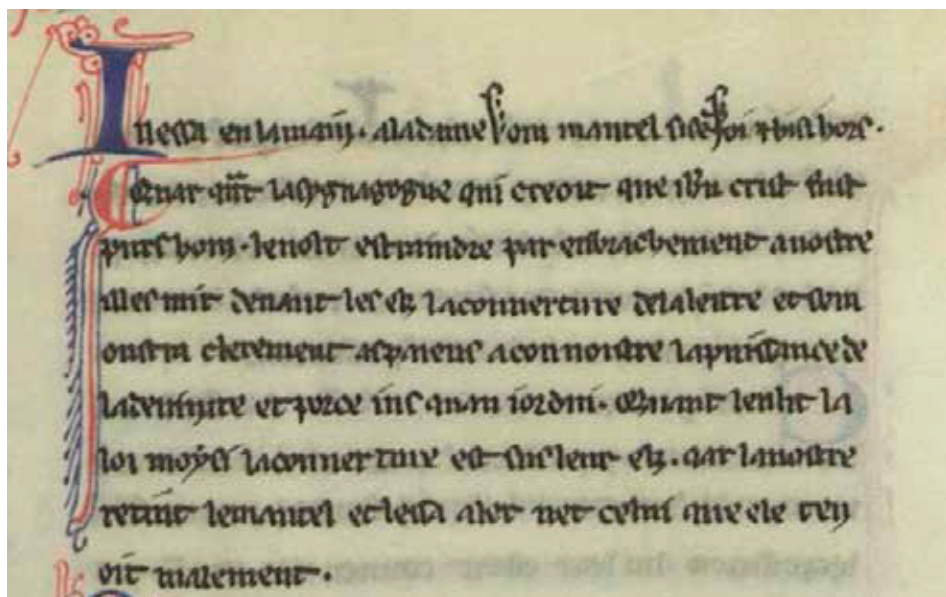 Il lessa en la main . a la dame son mantel si se foi ⁊ hissi hors .
Quar qnt la synagogue qui creoit que ihu crist fust
purs hom . le volt estraindre par enbrachement auoltre
il les mit deuant les elz la couuerture de la leitre et dem
oustra clerement as paiens a connoistre la puissance de
la deuinite et por ce ius quau iordui . Quant len list la
loi moysi la couuerture est sus leur elz . qar lauoltre
retint le mantel et lessa aler net celui que ele ten
oit malement .